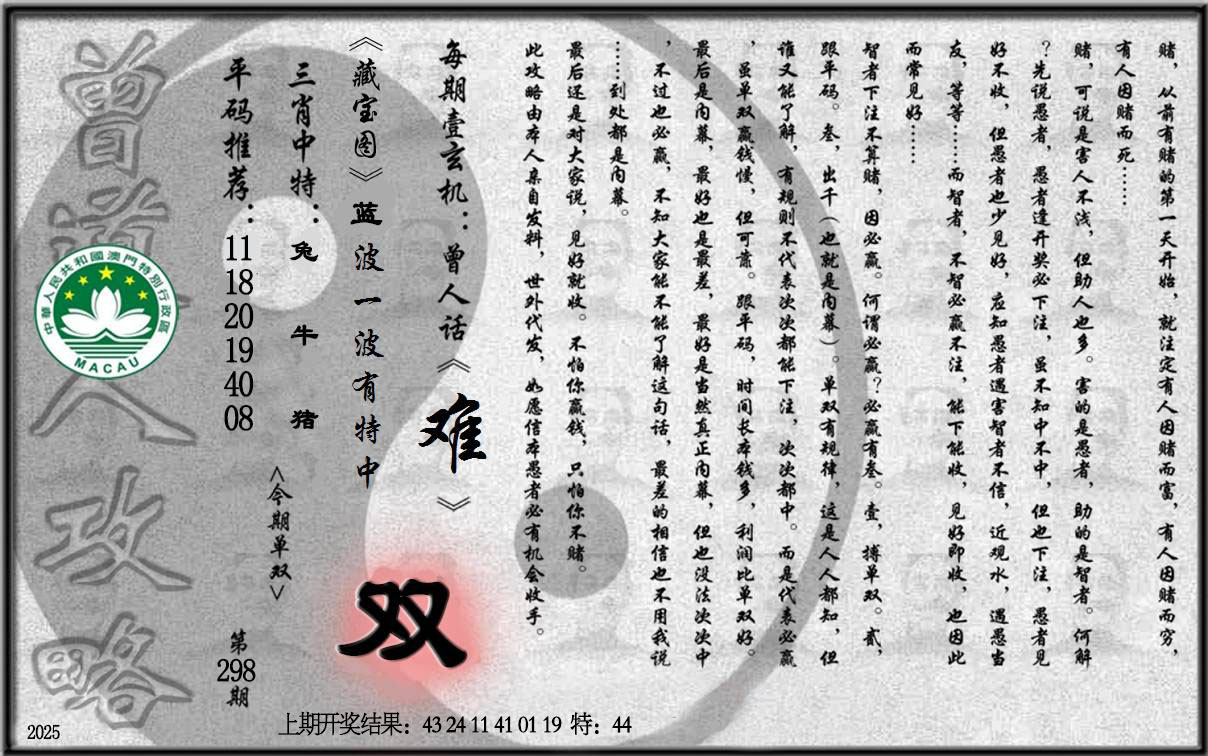 赌，从前有赌的第一天开始，就注定有人因赌而富，有人因赌而穷，
有人因赌而死……
赌，可说是害人不浅，但助人也多。害的是愚者，助的是智者。何解
？先说愚者，愚者逢开奖必下注，虽不知中不中，但也下注，愚者见
好不收，但愚者也少见好，应知愚者遇害智者不信，近观水，遇愚当
友，等等……而智者，不智必赢不注，能下能收，见好即收，也因此
而常见好……
智者下注不算赌，因必赢。何谓必赢？必赢有叁。壹，搏单双。贰，
跟平码。叁，出千（也就是内幕）。单双有规律，这是人人都知，但
谁又能了解，有规则不代表次次都能下注，次次都中。而是代表必赢
，虽单双赢钱慢，但可靠。跟平码，时间长本钱多，利润比单双好。
最后是内幕，最好也是最差，最好是当然真正内幕，但也没法次次中
，不过也必赢，不知大家能不能了解这句话，最差的相信也不用我说
……到处都是内幕。
最后还是对大家说，见好就收。不怕你赢钱，只怕你不赌。
此攻略由本人亲自发料，世外代发，如愿信本愚者必有机会收手。
每期壹玄机：曾人话《难》
《藏宝图》蓝波一波有特中
双
三肖中特：兔 牛 猪
<今期单双>
平码推荐：11 18 20 19 40 08
第298期
曾道人攻略
中華人民共和國澳門特別行政區
MACAU
2025
上期开奖结果：43 24 11 41 01 19 特：44